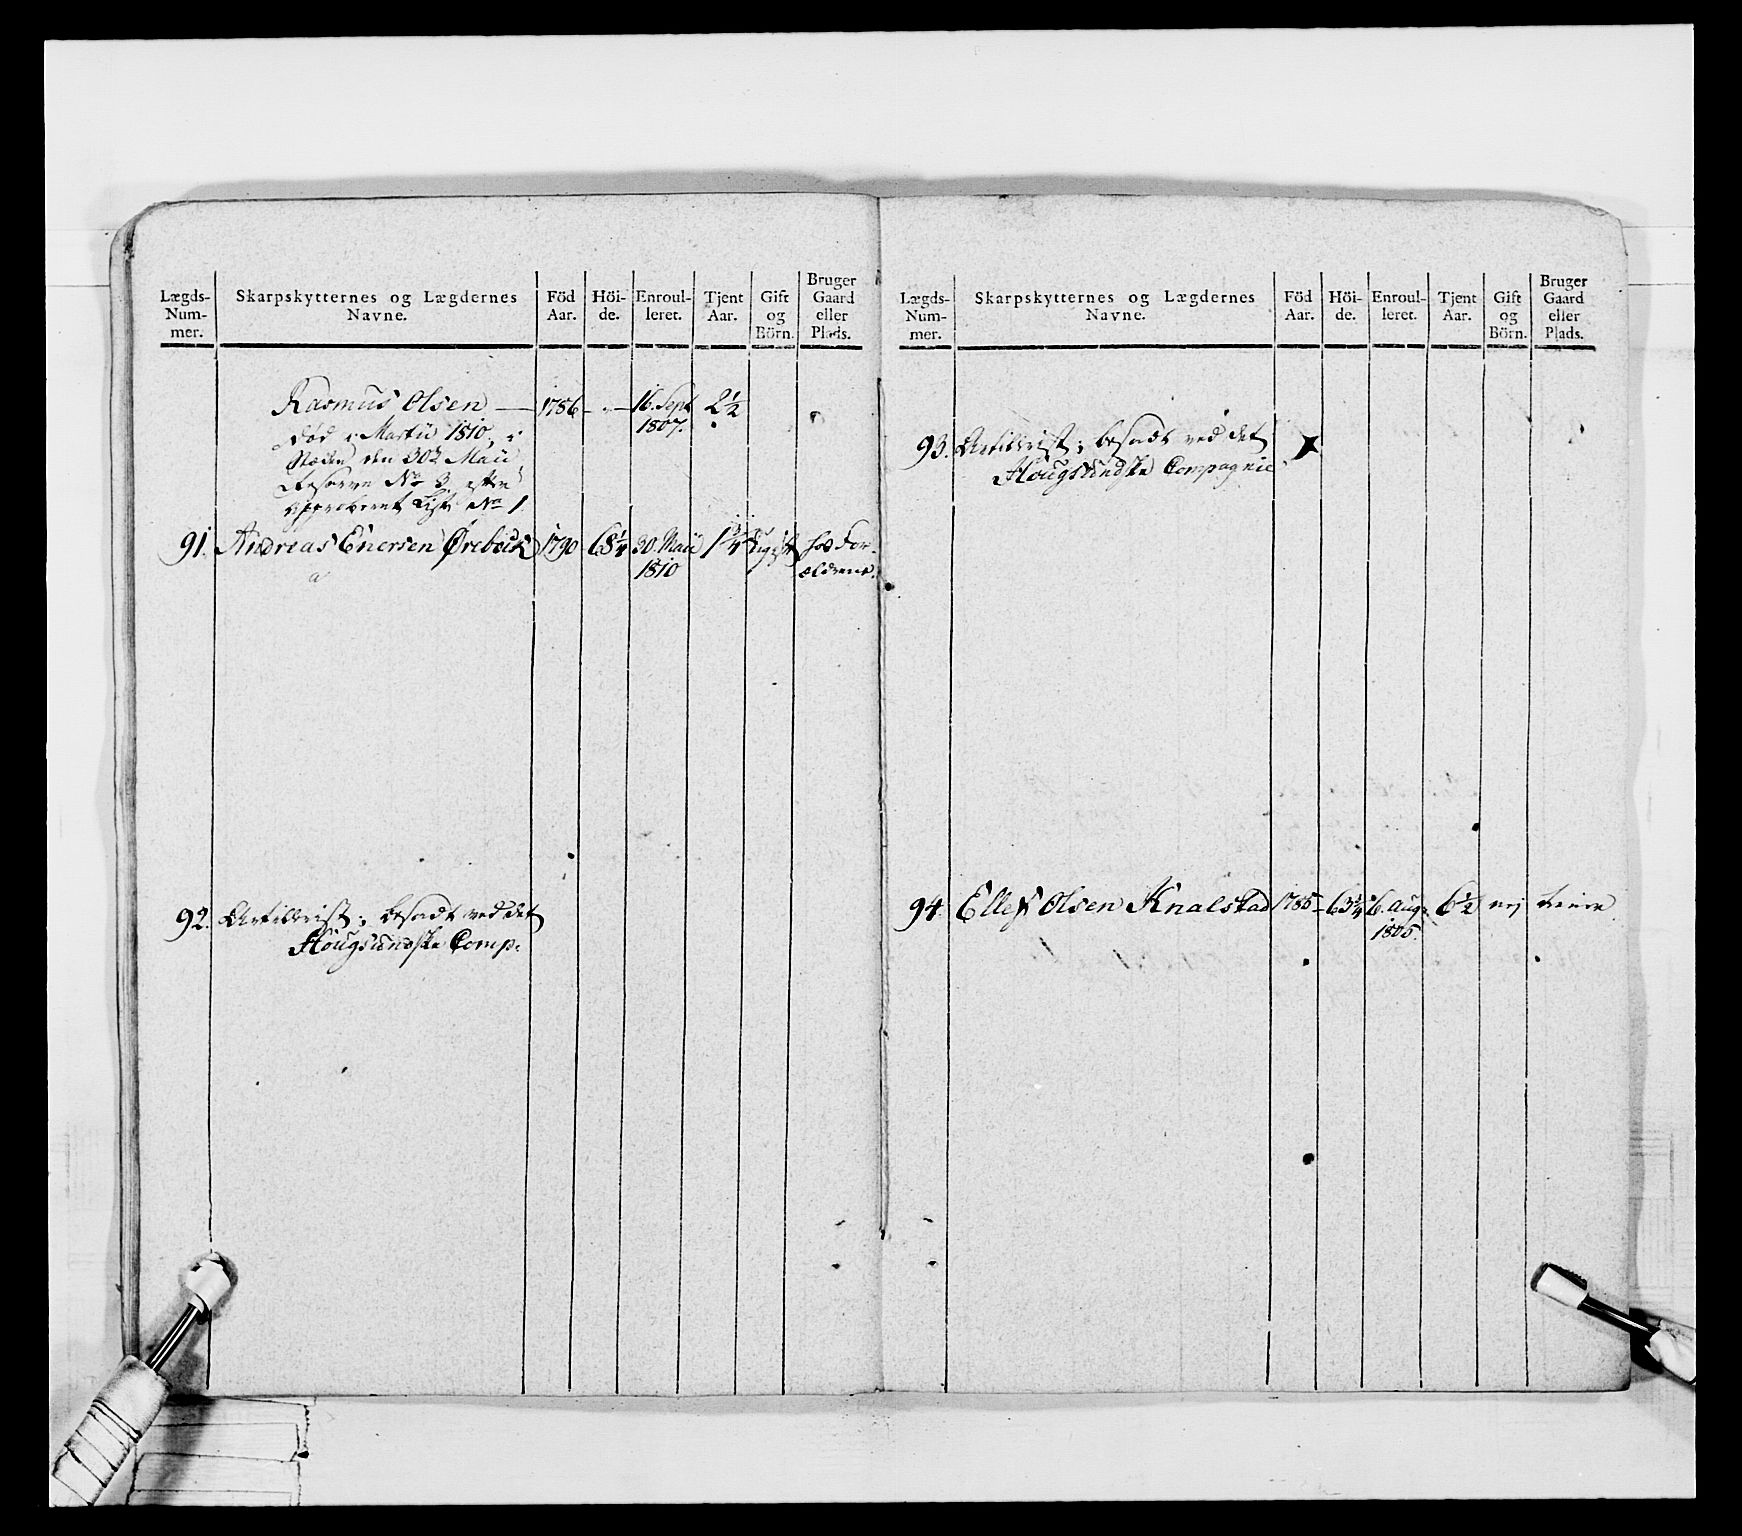 Lægds-
Num-
mer.
Skarpskytternes og Lægdernes
Navne.
Föd
Aar.
Höi-
de.
Enroul-
leret.
Tjent
Aar.
Gift
og
Börn.
Bruger
Gaard
eller
Plads.
Rasmus Olsen — 1786 - " - 16. Sept 2½
1807.
død i Martii 1810, i
Stæden den 30te Maii
Reserve No 3 efter
approberet List No 1
91. Andreas Enersen Ørebech 1790 68¼ 30. Maii 1¾ ugift hos For-
1810 ældrene.
92. Artillerist; besadt ved det
Hougsundske Comp:
Lægds-
Num-
mer.
Skarpskytternes og Lægdernes
Navne.
Föd
Aar.
Höi-
de.
Enroul-
leret.
Tjent
Aar.
Gift
og
Börn.
Bruger
Gaard
eller
Plads.
93. Artillerist; besadt ved det
Hougsundske Compagnie
94. Ellef Olsen Knalstad 1785 - 63¼ 6. aug: 6½ nej tiener
1805.